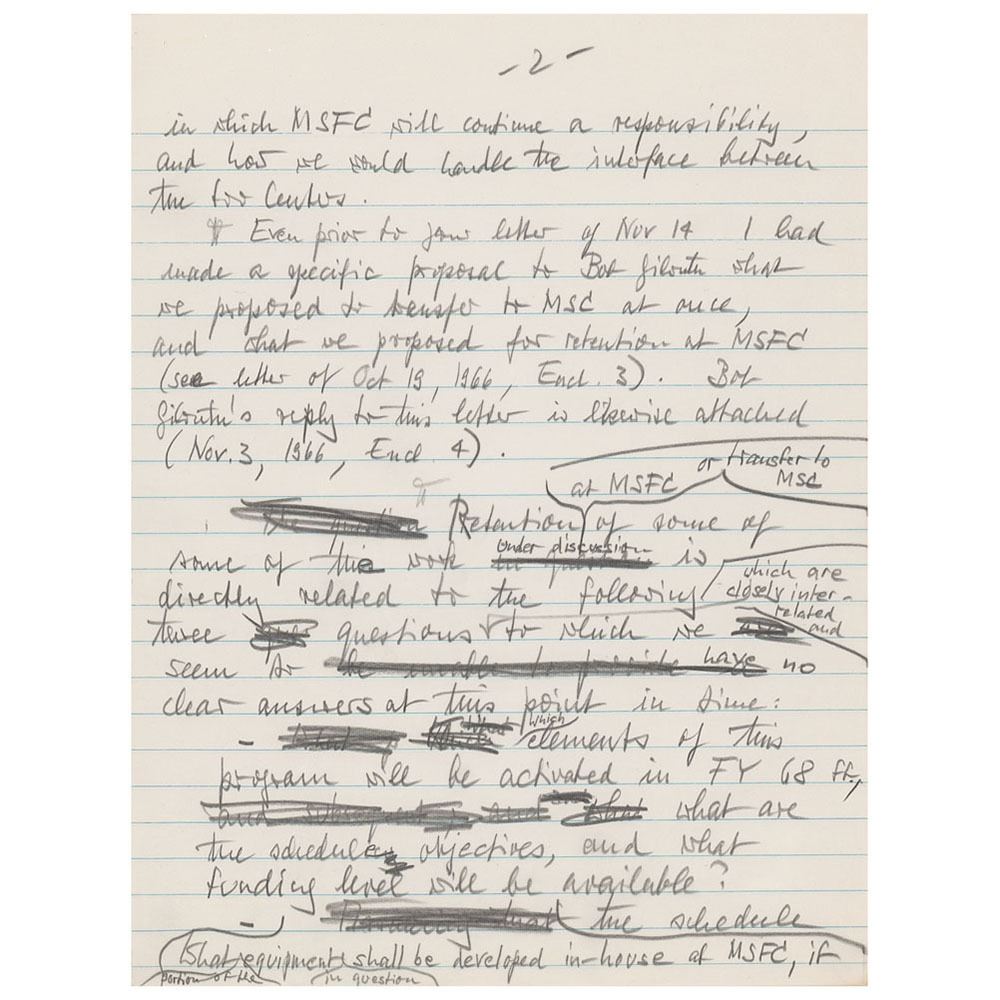 -2-
in which MSFC will continue a responsibility,
and how we would handle the interface between
the two Centers.
¶ Even prior to your letter of Nov 14 I had
made a specific proposal to Bob Gilruth what
we proposed to transfer to MSC at once,
and what we proposed for retention at MSFC
(see letter of Oct 19, 1966, Encl. 3). Bob
Gilruth's reply to this letter is likewise attached
(Nov. 3, 1966, Encl 4).
or transfer to
at MSFC
MSC
¶
Retention of some of
under discussion
some of the work is
which are
closely inter-
directly related to the following
related
and
three questions to which we
seem to have no
clear answers at this point in time:
which
- elements of this
program will be activated in FY 68 ff,
what are
the schedule objectives, and what
funding level will be available?
- the schedule
What equipment shall be developed in-house at MSFC, if
portion of the in question